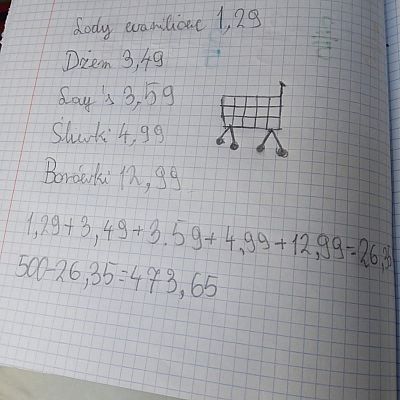 Lody waniliowe 1,29
Dżem 3,49
Lay's 3,59
Śliwki 4,99
Borówki 12,99
1,29+3,49+3.59+4,99+12,99=26,35
500-26,35=473,65